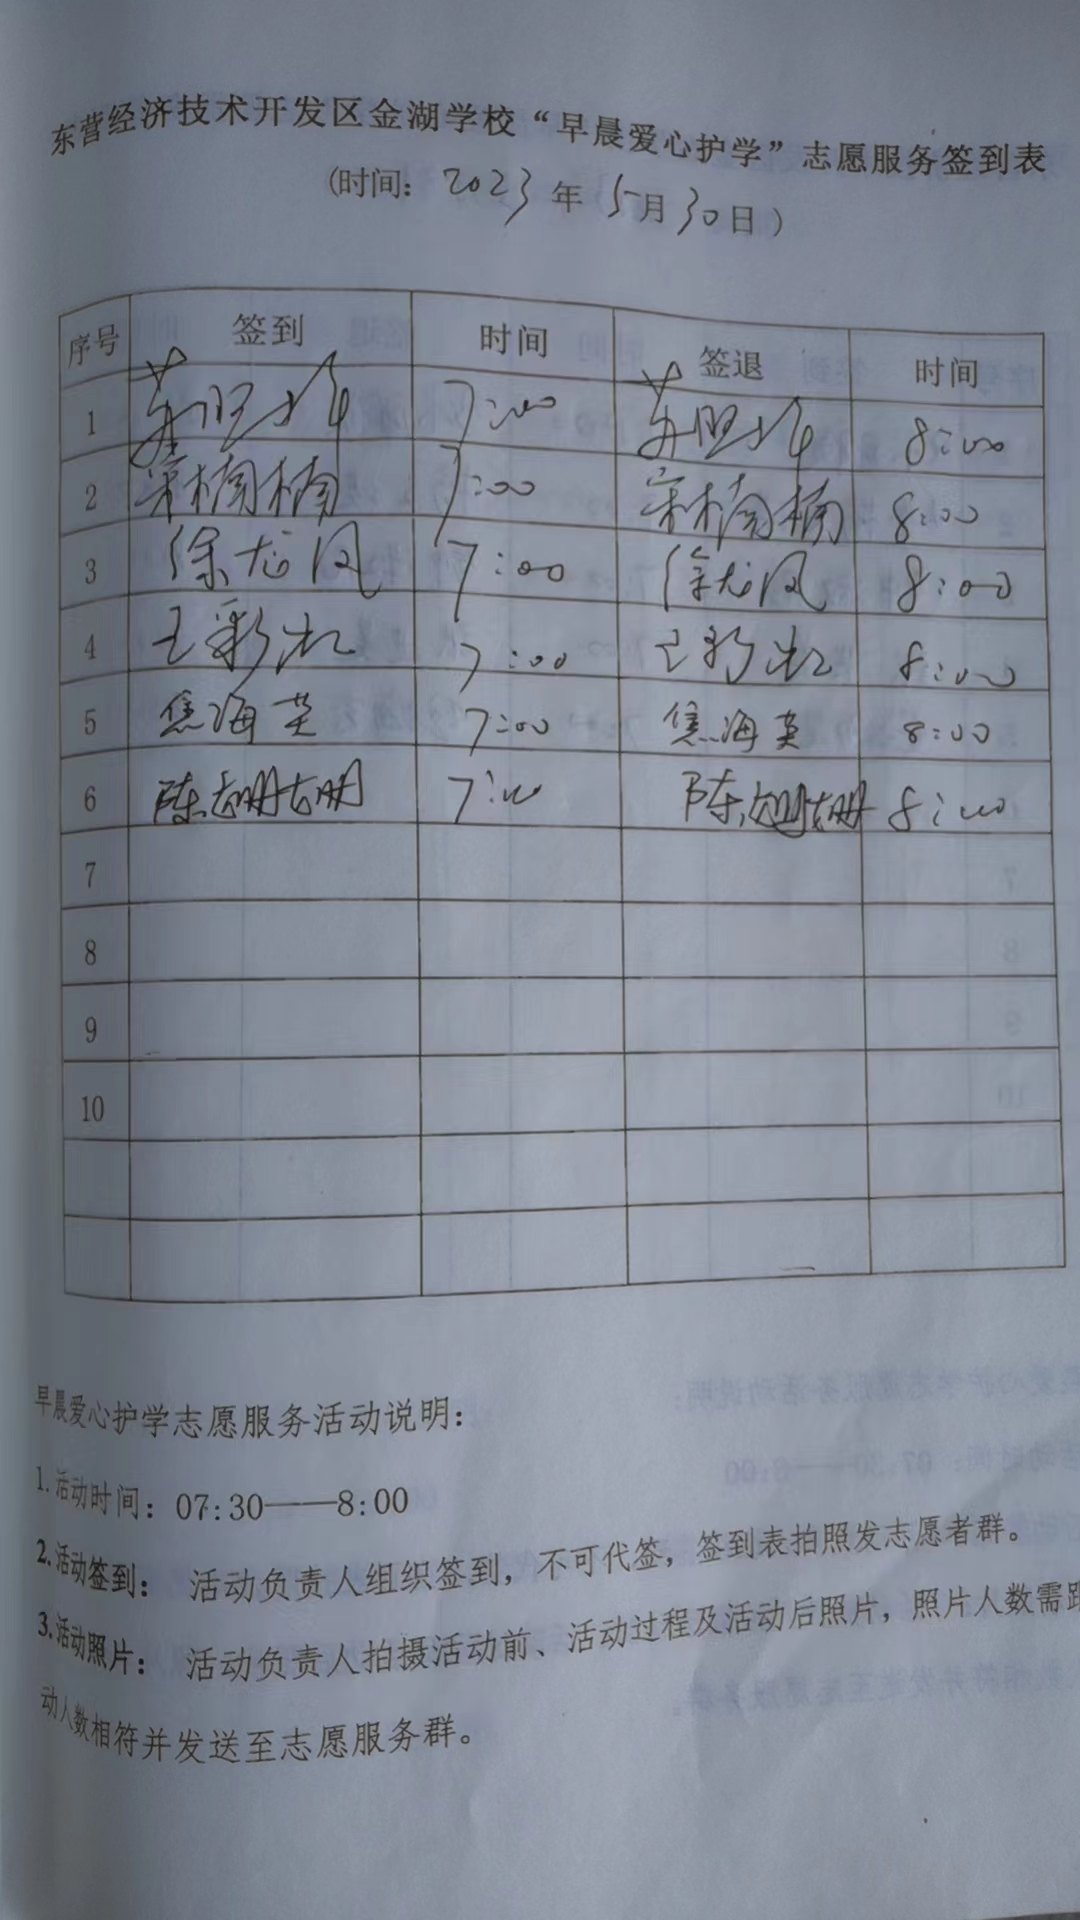 东营经济技术开发区金湖学校“早晨爱心护学”志愿服务签到表
(时间: 2023 年 5 月 30 日)
序号 签到 时间 签退 时间
1 7:00 8:00
2 宋楠楠 7:00 宋楠楠 8:00
3 徐龙凤 7:00 徐龙凤 8:00
4 王彩虹 7:00 王彩虹 8:00
5 焦海英 7:00 焦海英 8:00
6 陈 7:00 陈 8:00
7
8
9
10
早晨爱心护学志愿服务活动说明:
1.活动时间: 07:30——8:00
2.活动签到: 活动负责人组织签到, 不可代签, 签到表拍照发志愿者群。
3.活动照片: 活动负责人拍摄活动前、活动过程及活动后照片, 照片人数需
动人数相符并发送至志愿服务群。